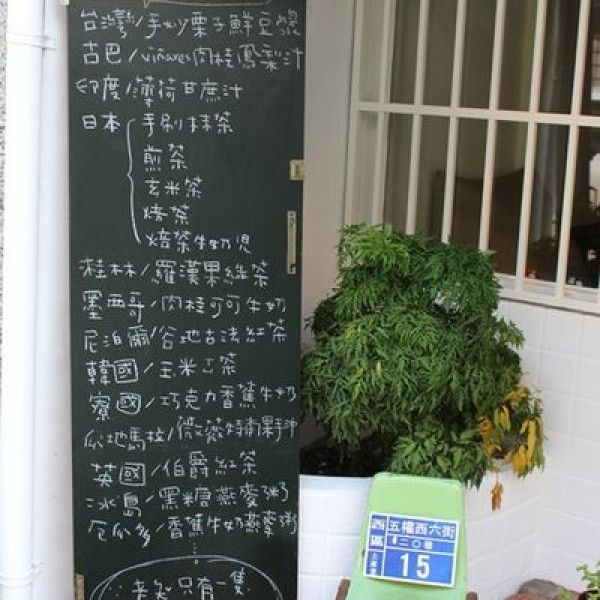 台灣/手炒栗子鮮豆漿
古巴/viñares肉桂鳳梨汁
印度/薄荷甘蔗汁
日本 手刷抹茶
煎茶
玄米茶
焙茶
焙茶牛奶児
桂林/羅漢果綠茶
墨西哥/肉桂可可牛奶
尼泊爾/谷地古法紅茶
韓國/玉米工茶
寮國/巧克力香蕉牛奶
瓜地馬拉/微蒸特衛果汁
英國/伯爵紅茶
冰島/黑糖燕麥粥
厄瓜多/香蕉牛奶燕麥粥
老知只有一隻
五權西六街
西區
二〇巷
15